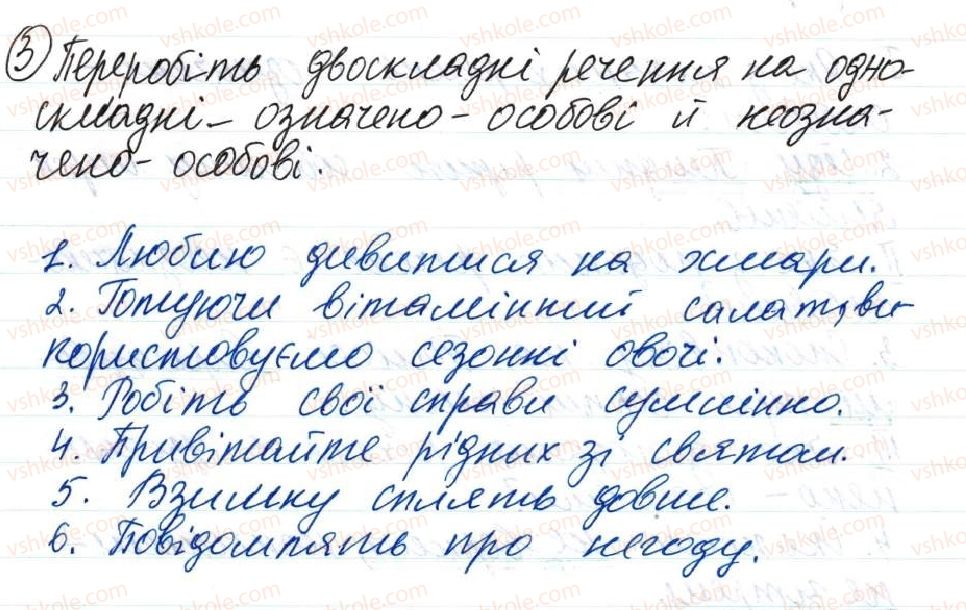 3 Переробіть двоскладні речення на одно-
складні – означено-особові й неозна-
чено-особові.
1. Люблю дивитися на хмари.
2. Готуючи вітамінний салат, ви-
користовуємо сезонні овочі.
3. Робіть свої справи сумлінно.
4. Привітайте рідних зі святом.
5. Взимку сплять довше.
6. Повідомлять про негоду.